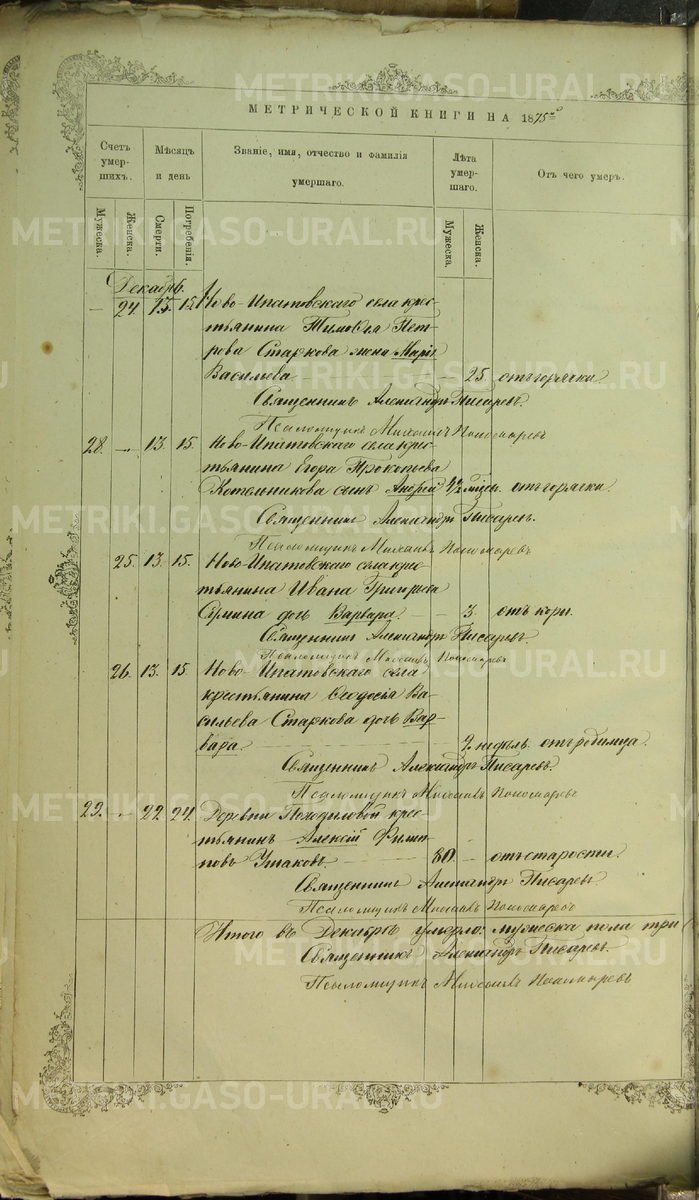 METRIKI.GASO-URAL.RU
МЕТРИЧЕСКОЙ КНИГИ НА 1875го
Счетъ умер-шихъ.
Мѣсяцъ и день
Званіе, имя, отчество и фамилія умершаго.
Лѣта умер-шаго.
Отъ чего умеръ.
Мужеска.
Женска.
Смерти.
Погребенія.
Мужеска.
Женска.
Декабрь.
24. 13. 15. Ново-Ипатовскаго села крес-
тьянина Тимофея Пет-
рова Старкова жена Марія
Васильева 25 отъ горячки.
Священникъ Александръ Писаревъ.
Псаломщикъ Михаилъ Пономаревъ
28. 13. 15. Ново-Ипатовскаго села крес-
тьянина Егора Прокопьева
Котельникова сынъ Андрей отъ горячки.
Священникъ Александръ Писаревъ.
Псаломщикъ Михаилъ Пономаревъ
25. 13. 15. Ново-Ипатовскаго села крес-
тьянина Ивана Григорьева
дочь Варвара. 3 отъ кори.
Священникъ Александръ Писаревъ.
Псаломщикъ Михаилъ Пономаревъ
26. 13. 15. Ново-Ипатовскаго села
крестьянина Ѳеодосія Ва-
сильева Старкова дочь Вар-
вара. недѣль. отъ родимца.
Священникъ Александръ Писаревъ.
Псаломщикъ Михаилъ Пономаревъ
29. 22. 24. Деревни крес-
тьянинъ Алексій Филип-
повъ Ушаковъ. 80. отъ старости.
Священникъ Александръ Писаревъ
Псаломщикъ Михаилъ Пономаревъ
Итого въ Декабрѣ умерло: мужеска пола три
Священникъ Александръ Писаревъ.
Псаломщикъ Михаилъ Пономаревъ
METRIKI.GASO-URAL.RU